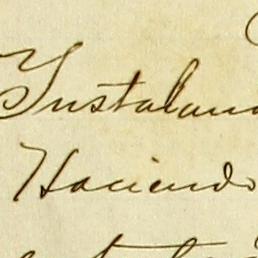 Instaland
Haciendo